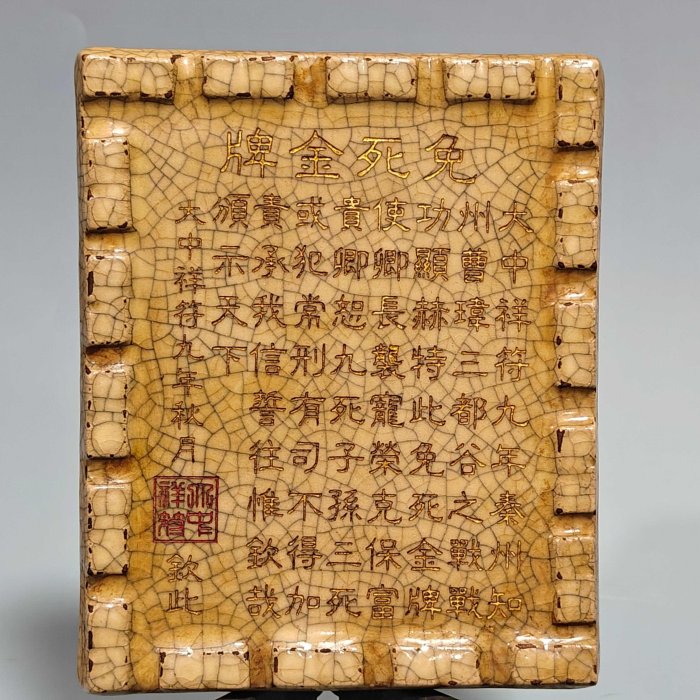 免死金牌
大中祥符九年秦州知
州曹瑋三都谷之戰戰
功顯赫特此免死金牌
使卿長襲寵榮克保富
貴卿恕九死子孫三死
或犯常刑有司不得加
責承我信誓往惟欽哉
頒示天下
大中祥符九年秋月
大中祥符
欽此